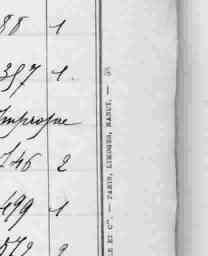 88 1
397 1.
Impropre
746 2
499 1
572 2
LE ET Cie. — PARIS, LIMOGES, NANCY. —